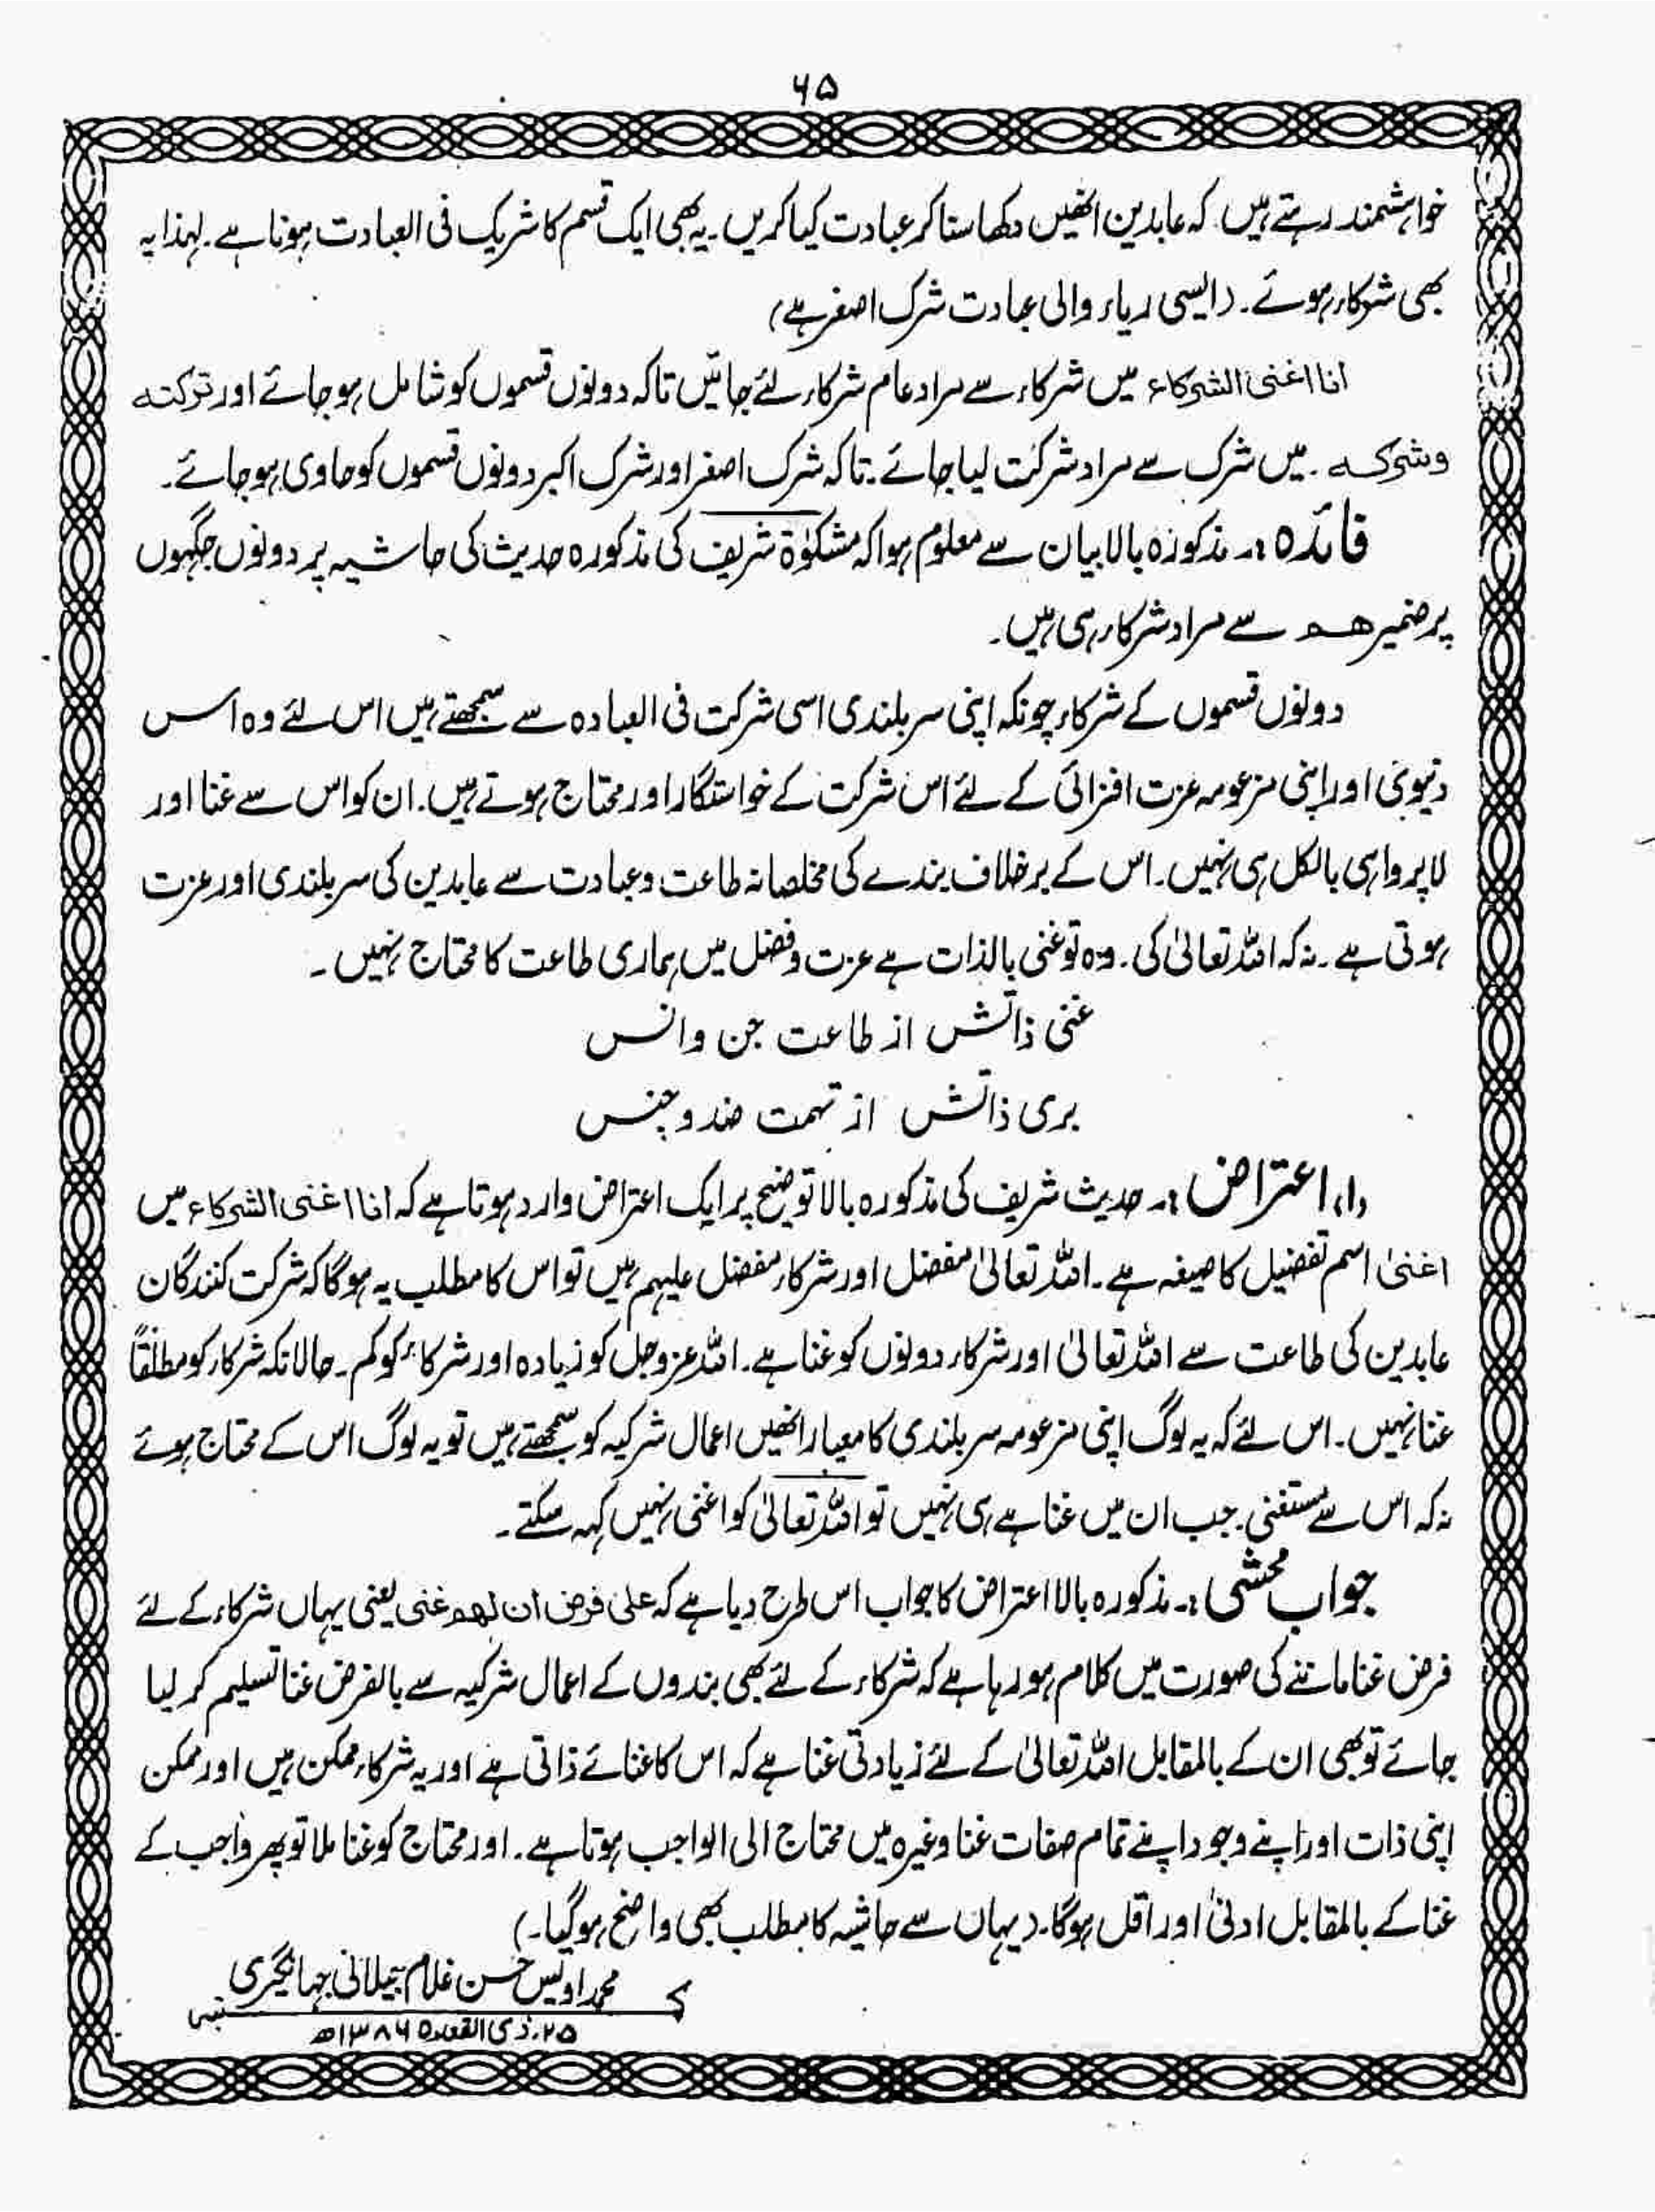 ۶۵
خواہشمند رہتے ہیں کہ عابدین انھیں دکھا سنا کر عبادت کیا کریں۔ یہ بھی ایک قسم کا شریک فی العبادت ہونا ہے۔ لہٰذا یہ
بھی شرکاء ہوئے۔ (ایسی ریاء والی عبادت شرک اصغر ہے)
انا اغنی الشرکاء میں شرکاء سے مراد عام شرکاء لئے جائیں تاکہ دونوں قسموں کو شامل ہو جائے اور ترکتہ
وشرکہ۔ میں شرک سے مراد شرکت لیا جائے۔ تاکہ شرک اصغر اور شرک اکبر دونوں قسموں کو حاوی ہو جائے۔
فائدہ :۔ مذکورہ بالا بیان سے معلوم ہوا کہ مشکوٰۃ شریف کی مذکورہ حدیث کی حاشیہ پر دونوں جگہوں
پر ضمیر ھم سے مراد شرکاء ہی ہیں۔
دونوں قسموں کے شرکاء چونکہ اپنی سربلندی اسی شرکت فی العبادہ سے سمجھتے ہیں اس لئے وہ اس
دنیوی اور اپنی مزعومہ عزت افزائی کے لئے اس شرکت کے خواستگار اور محتاج ہوتے ہیں۔ ان کو اس سے غنا اور
لاپرواہی بالکل ہی نہیں۔ اس کے برخلاف بندے کی مخلصانہ طاعت وعبادت سے عابدین کی سربلندی اور عزت
ہوتی ہے۔ نہ کہ اللہ تعالیٰ کی۔ وہ تو غنی بالذات ہے عزت وفضل میں ہماری طاعت کا محتاج نہیں۔
غنی ذاتش از طاعت جن وانس
بری ذاتش از تہمت ضد وجنس
(۱) اعتراض :۔ حدیث شریف کی مذکورہ بالا توضیح پر ایک اعتراض وارد ہوتا ہے کہ انا اغنی الشرکاء میں
اغنیٰ اسم تفضیل کا صیغہ ہے۔ اللہ تعالیٰ مفضل اور شرکاء مفضل علیہم ہیں تو اس کا مطلب یہ ہوگا کہ شرکت کنندگان
عابدین کی طاعت سے اللہ تعالیٰ اور شرکاء دونوں کو غنا ہے۔ اللہ عزوجل کو زیادہ اور شرکاء کو کم۔ حالانکہ شرکاء کو مطلقاً
غنا نہیں۔ اس لئے کہ یہ لوگ اپنی مزعومہ سربلندی کا معیار انھیں اعمال شرکیہ کو سمجھتے ہیں تو یہ لوگ اس کے محتاج ہوئے
نہ کہ اس سے مستغنی۔ جب ان میں غنا ہے ہی نہیں تو اللہ تعالیٰ کو اغنی نہیں کہہ سکتے۔
جواب محشی :۔ مذکورہ بالا اعتراض کا جواب اس طرح دیا ہے کہ علی فرض ان لھم غنی یعنی یہاں شرکاء کے لئے
فرض غنا ماننے کی صورت میں کلام ہو رہا ہے کہ شرکاء کے لئے بھی بندوں کے اعمال شرکیہ سے بالفرض غنا تسلیم کر لیا
جائے تو بھی ان کے بالمقابل اللہ تعالیٰ کے لئے زیادتی غنا ہے کہ اس کا غنائے ذاتی ہے اور یہ شرکاء ممکن ہیں اور ممکن
اپنی ذات اور اپنے وجود اپنے تمام صفات غنا وغیرہ میں محتاج الی الواجب ہوتا ہے۔ اور محتاج کو غنا ملا تو پھر واجب کے
غنا کے بالمقابل ادنیٰ اور اقل ہوگا۔ (یہاں سے حاشیہ کا مطلب بھی واضح ہو گیا۔)
محمد اویس حسن غلام جیلانی جہانگیری
۲۵؍ ذی القعدہ ۱۳۸۶ھ